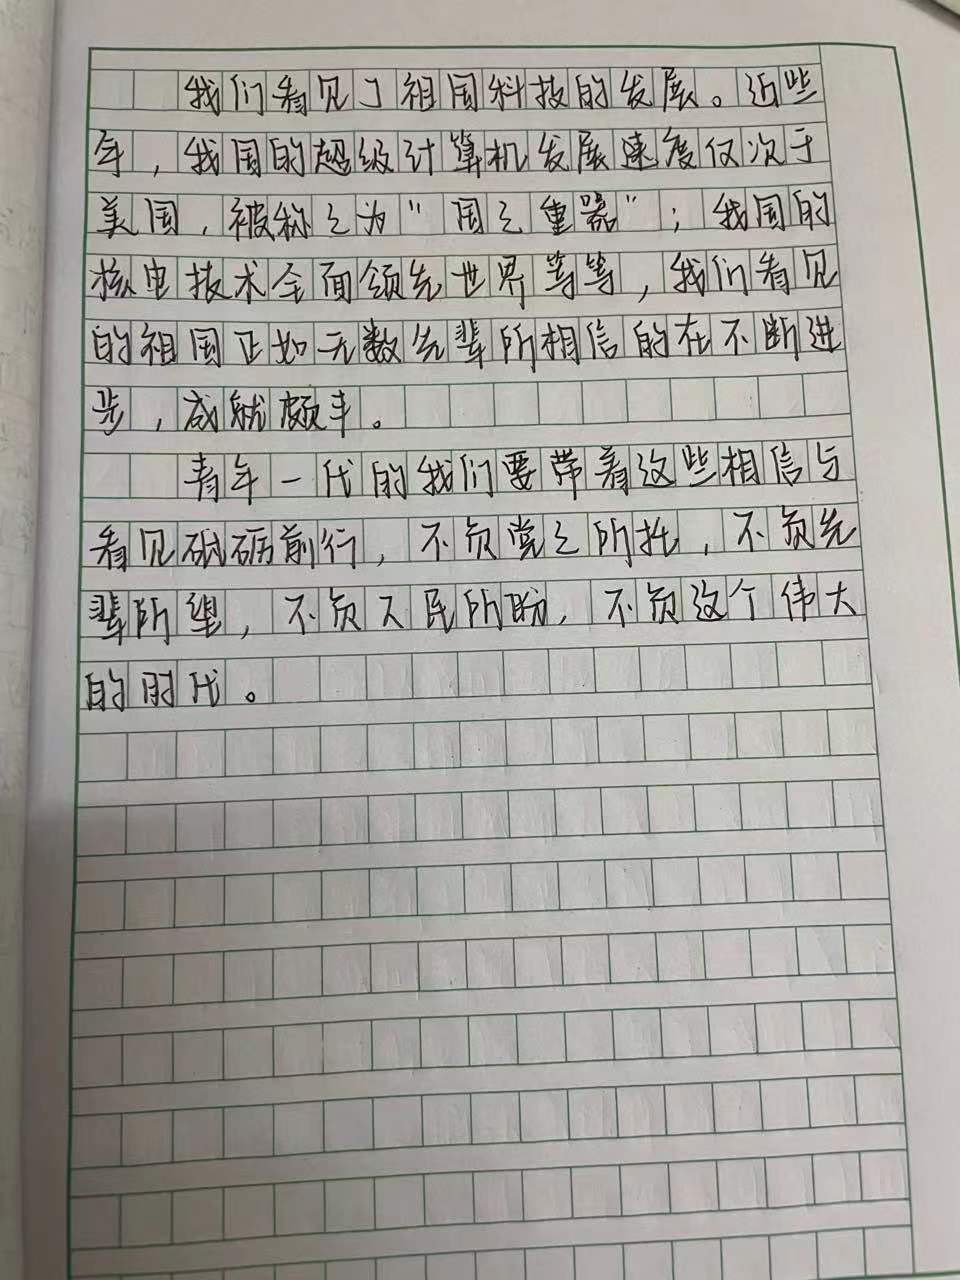 我们看见了祖国科技的发展。近些
年，我国的超级计算机发展速度仅次于
美国，被称之为“国之重器”；我国的
核电技术全面领先世界等等，我们看见
的祖国正如无数先辈所相信的在不断进
步，成就颇丰。
青年一代的我们要带着这些相信与
看见砥砺前行，不负党之所托，不负先
辈所望，不负人民所盼，不负这个伟大
的时代。